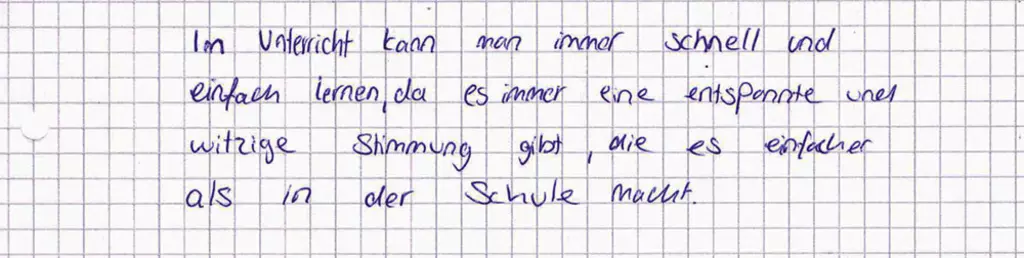 Im Unterricht kann man immer schnell und
einfach lernen, da es immer eine entspannte und
witzige Stimmung gibt, die es einfacher
als in der Schule macht.